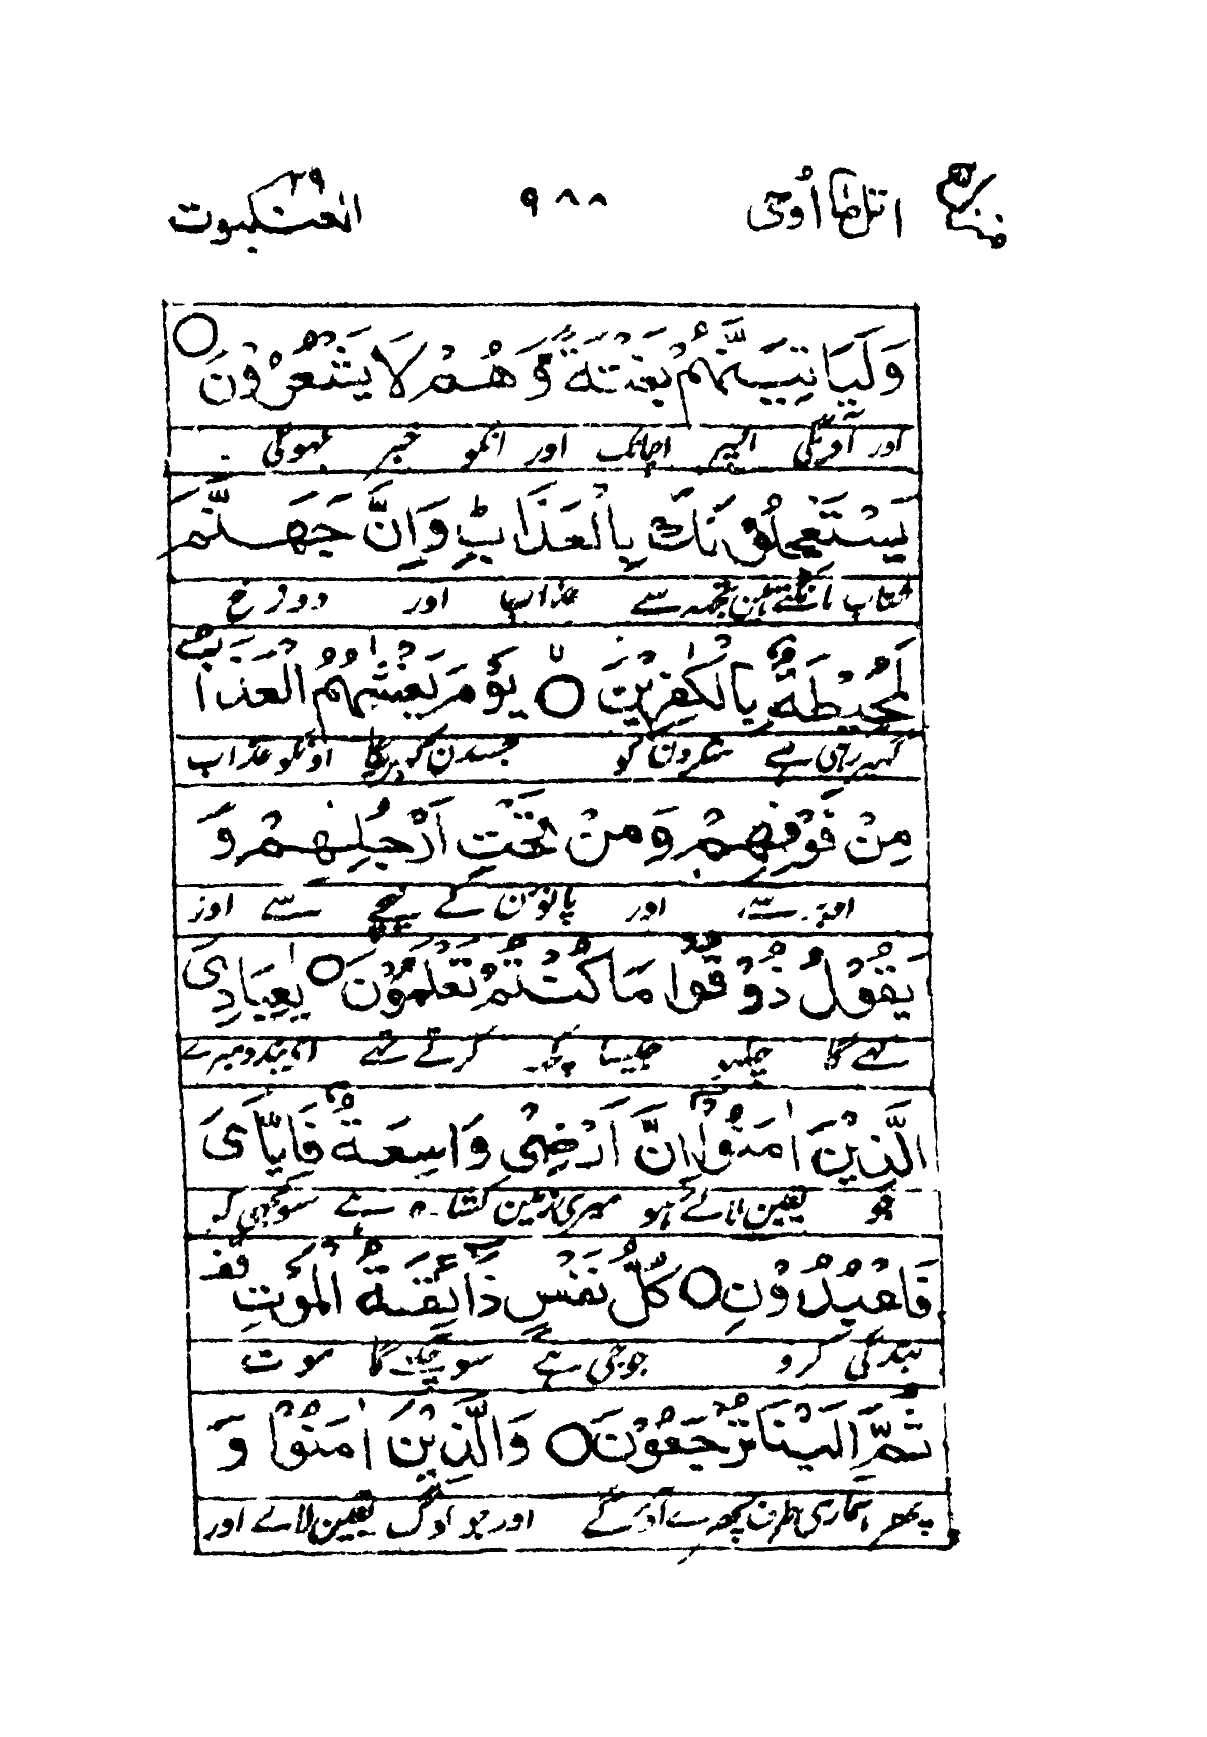 اتل مآ اوحی ۹۸۸ العنکبوت ۲۹
وَلَيَاْتِيَنَّهُمْ بَغْتَةً وَّهُمْ لَا يَشْعُرُوْنَ
اور آویگی انپر اچانک اور انکو خبر نہوگی
يَسْتَعْجِلُوْنَكَ بِالْعَذَابِ وَاِنَّ جَهَنَّمَ
شتاب مانگتے ہین تجھہ سے عذاب اور دوزخ
لَمُحِيْطَةٌ بِالْكٰفِرِيْنَ يَوْمَ يَغْشٰهُمُ الْعَذَابُ
گہیر رہی ہے منکرون کو جسدن گہیریگا اونکو عذاب
مِنْ فَوْقِهِمْ وَمِنْ تَحْتِ اَرْجُلِهِمْ وَ
اوپر سے اور پانوؤن کے نیچے سے اور
يَقُوْلُ ذُوْقُوْا مَا كُنْتُمْ تَعْمَلُوْنَ يٰعِبَادِیَ
کہے گا چکہو جیسا کچہہ کرتے تہے ای بندو میرے
الَّذِيْنَ اٰمَنُوْٓا اِنَّ اَرْضِیْ وَاسِعَةٌ فَاِيَّایَ
جو یقین لائے ہو میری زمین کشادہ ہے سو مجھی کو
فَاعْبُدُوْنِ كُلُّ نَفْسٍ ذَآئِقَةُ الْمَوْتِ قف
بندگی کرو جو جی ہے سو چکہے گا موت
ثُمَّ اِلَيْنَا تُرْجَعُوْنَ وَالَّذِيْنَ اٰمَنُوْا وَ
پھر ہماری طرف پھر آؤگے اور جو لوگ یقین لائے اور